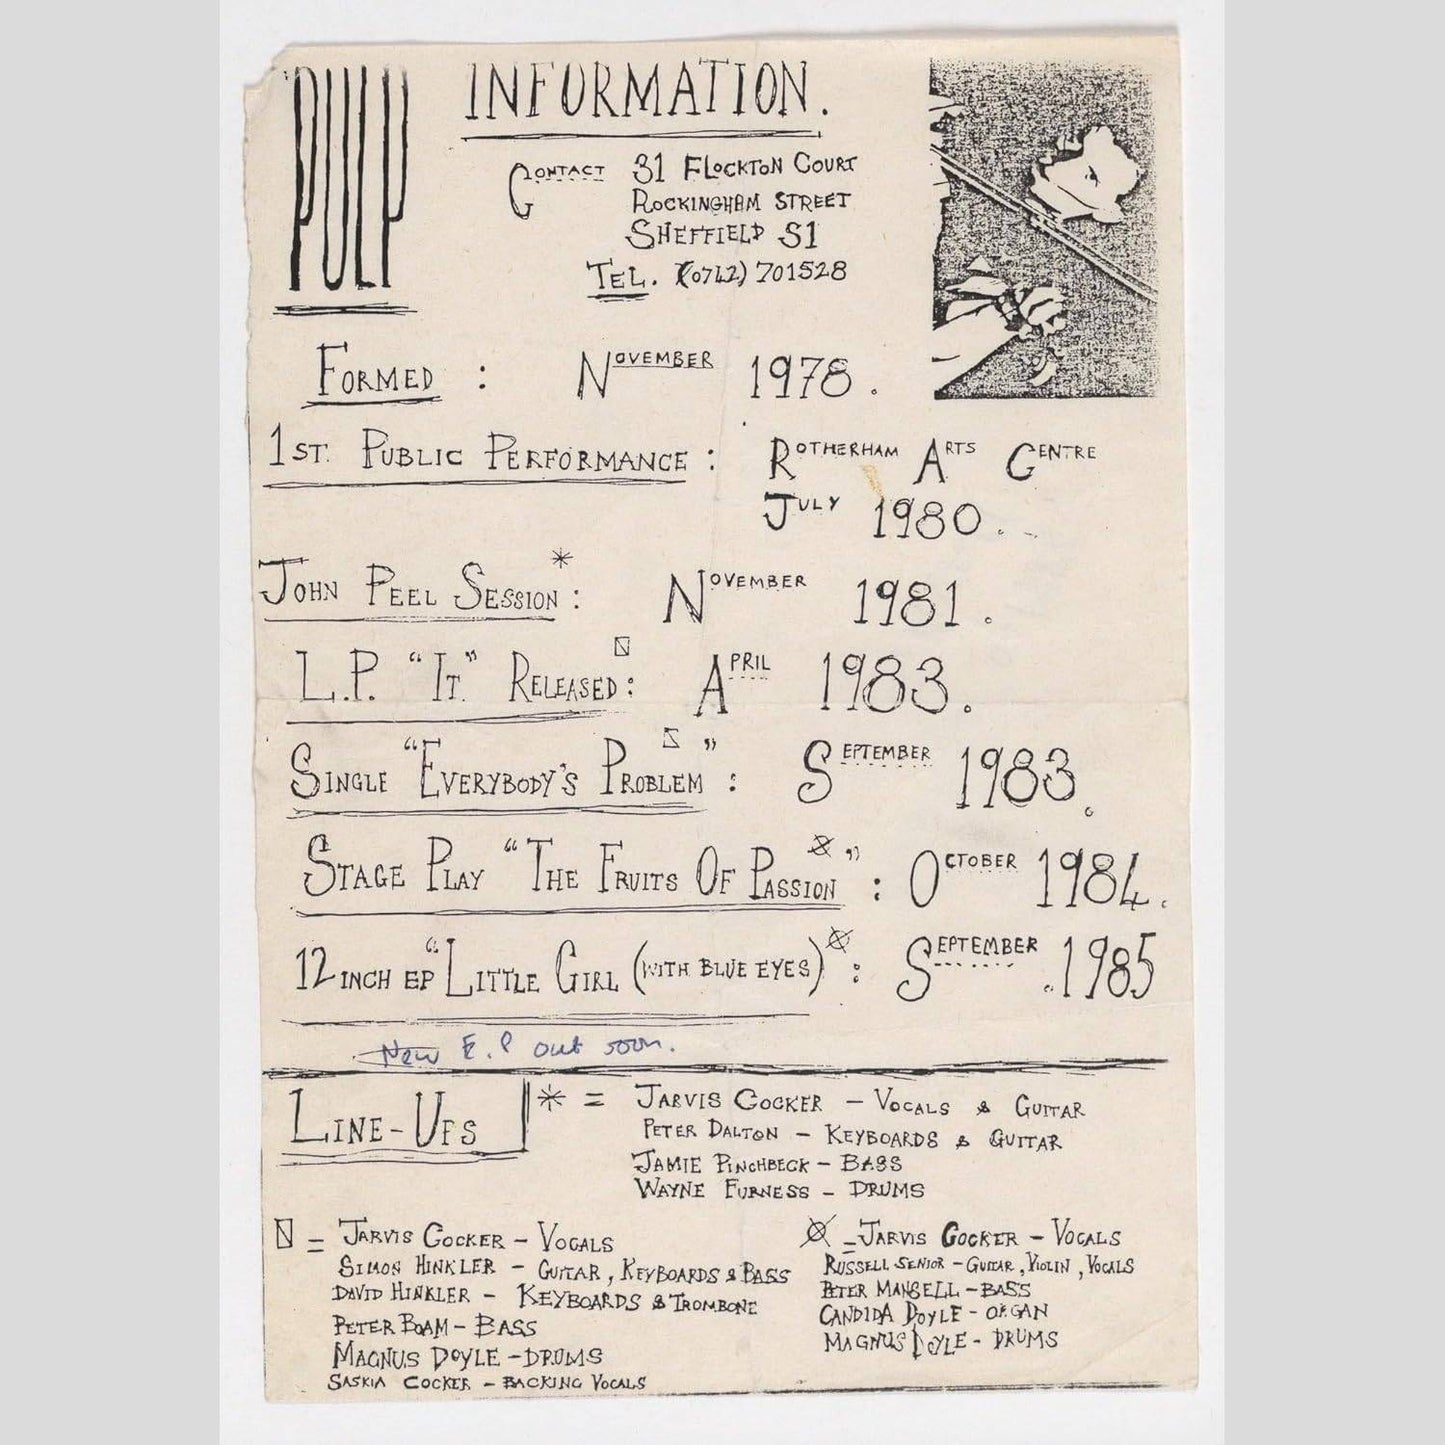 PULP
INFORMATION.
CONTACT 31 FLOCKTON COURT
ROCKINGHAM STREET
SHEFFIELD S1
TEL. (0742) 701528
FORMED : NOVEMBER 1978.
1ST. PUBLIC PERFORMANCE : ROTHERHAM ARTS CENTRE
JULY 1980.
JOHN PEEL SESSION * : NOVEMBER 1981.
L.P. "IT" RELEASED : APRIL 1983.
SINGLE "EVERYBODY'S PROBLEM" : SEPTEMBER 1983.
STAGE PLAY "THE FRUITS OF PASSION" : OCTOBER 1984.
12 INCH EP "LITTLE GIRL (WITH BLUE EYES) : SEPTEMBER .1985
New E.P out soon.
LINE-UPS * = JARVIS COCKER - VOCALS & GUITAR
PETER DALTON - KEYBOARDS & GUITAR
JAMIE PINCHBECK - BASS
WAYNE FURNESS - DRUMS
= JARVIS COCKER - VOCALS
SIMON HINKLER - GUITAR, KEYBOARDS & BASS
DAVID HINKLER - KEYBOARDS & TROMBONE
PETER BOAM - BASS
MAGNUS DOYLE - DRUMS
SASKIA COCKER - BACKING VOCALS
= JARVIS COCKER - VOCALS
RUSSELL SENIOR - GUITAR, VIOLIN, VOCALS
PETER MANSELL - BASS
CANDIDA DOYLE - ORGAN
MAGNUS DOYLE - DRUMS